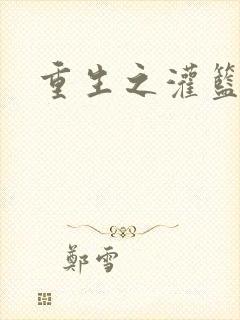 重生之灌籃
鄭雪